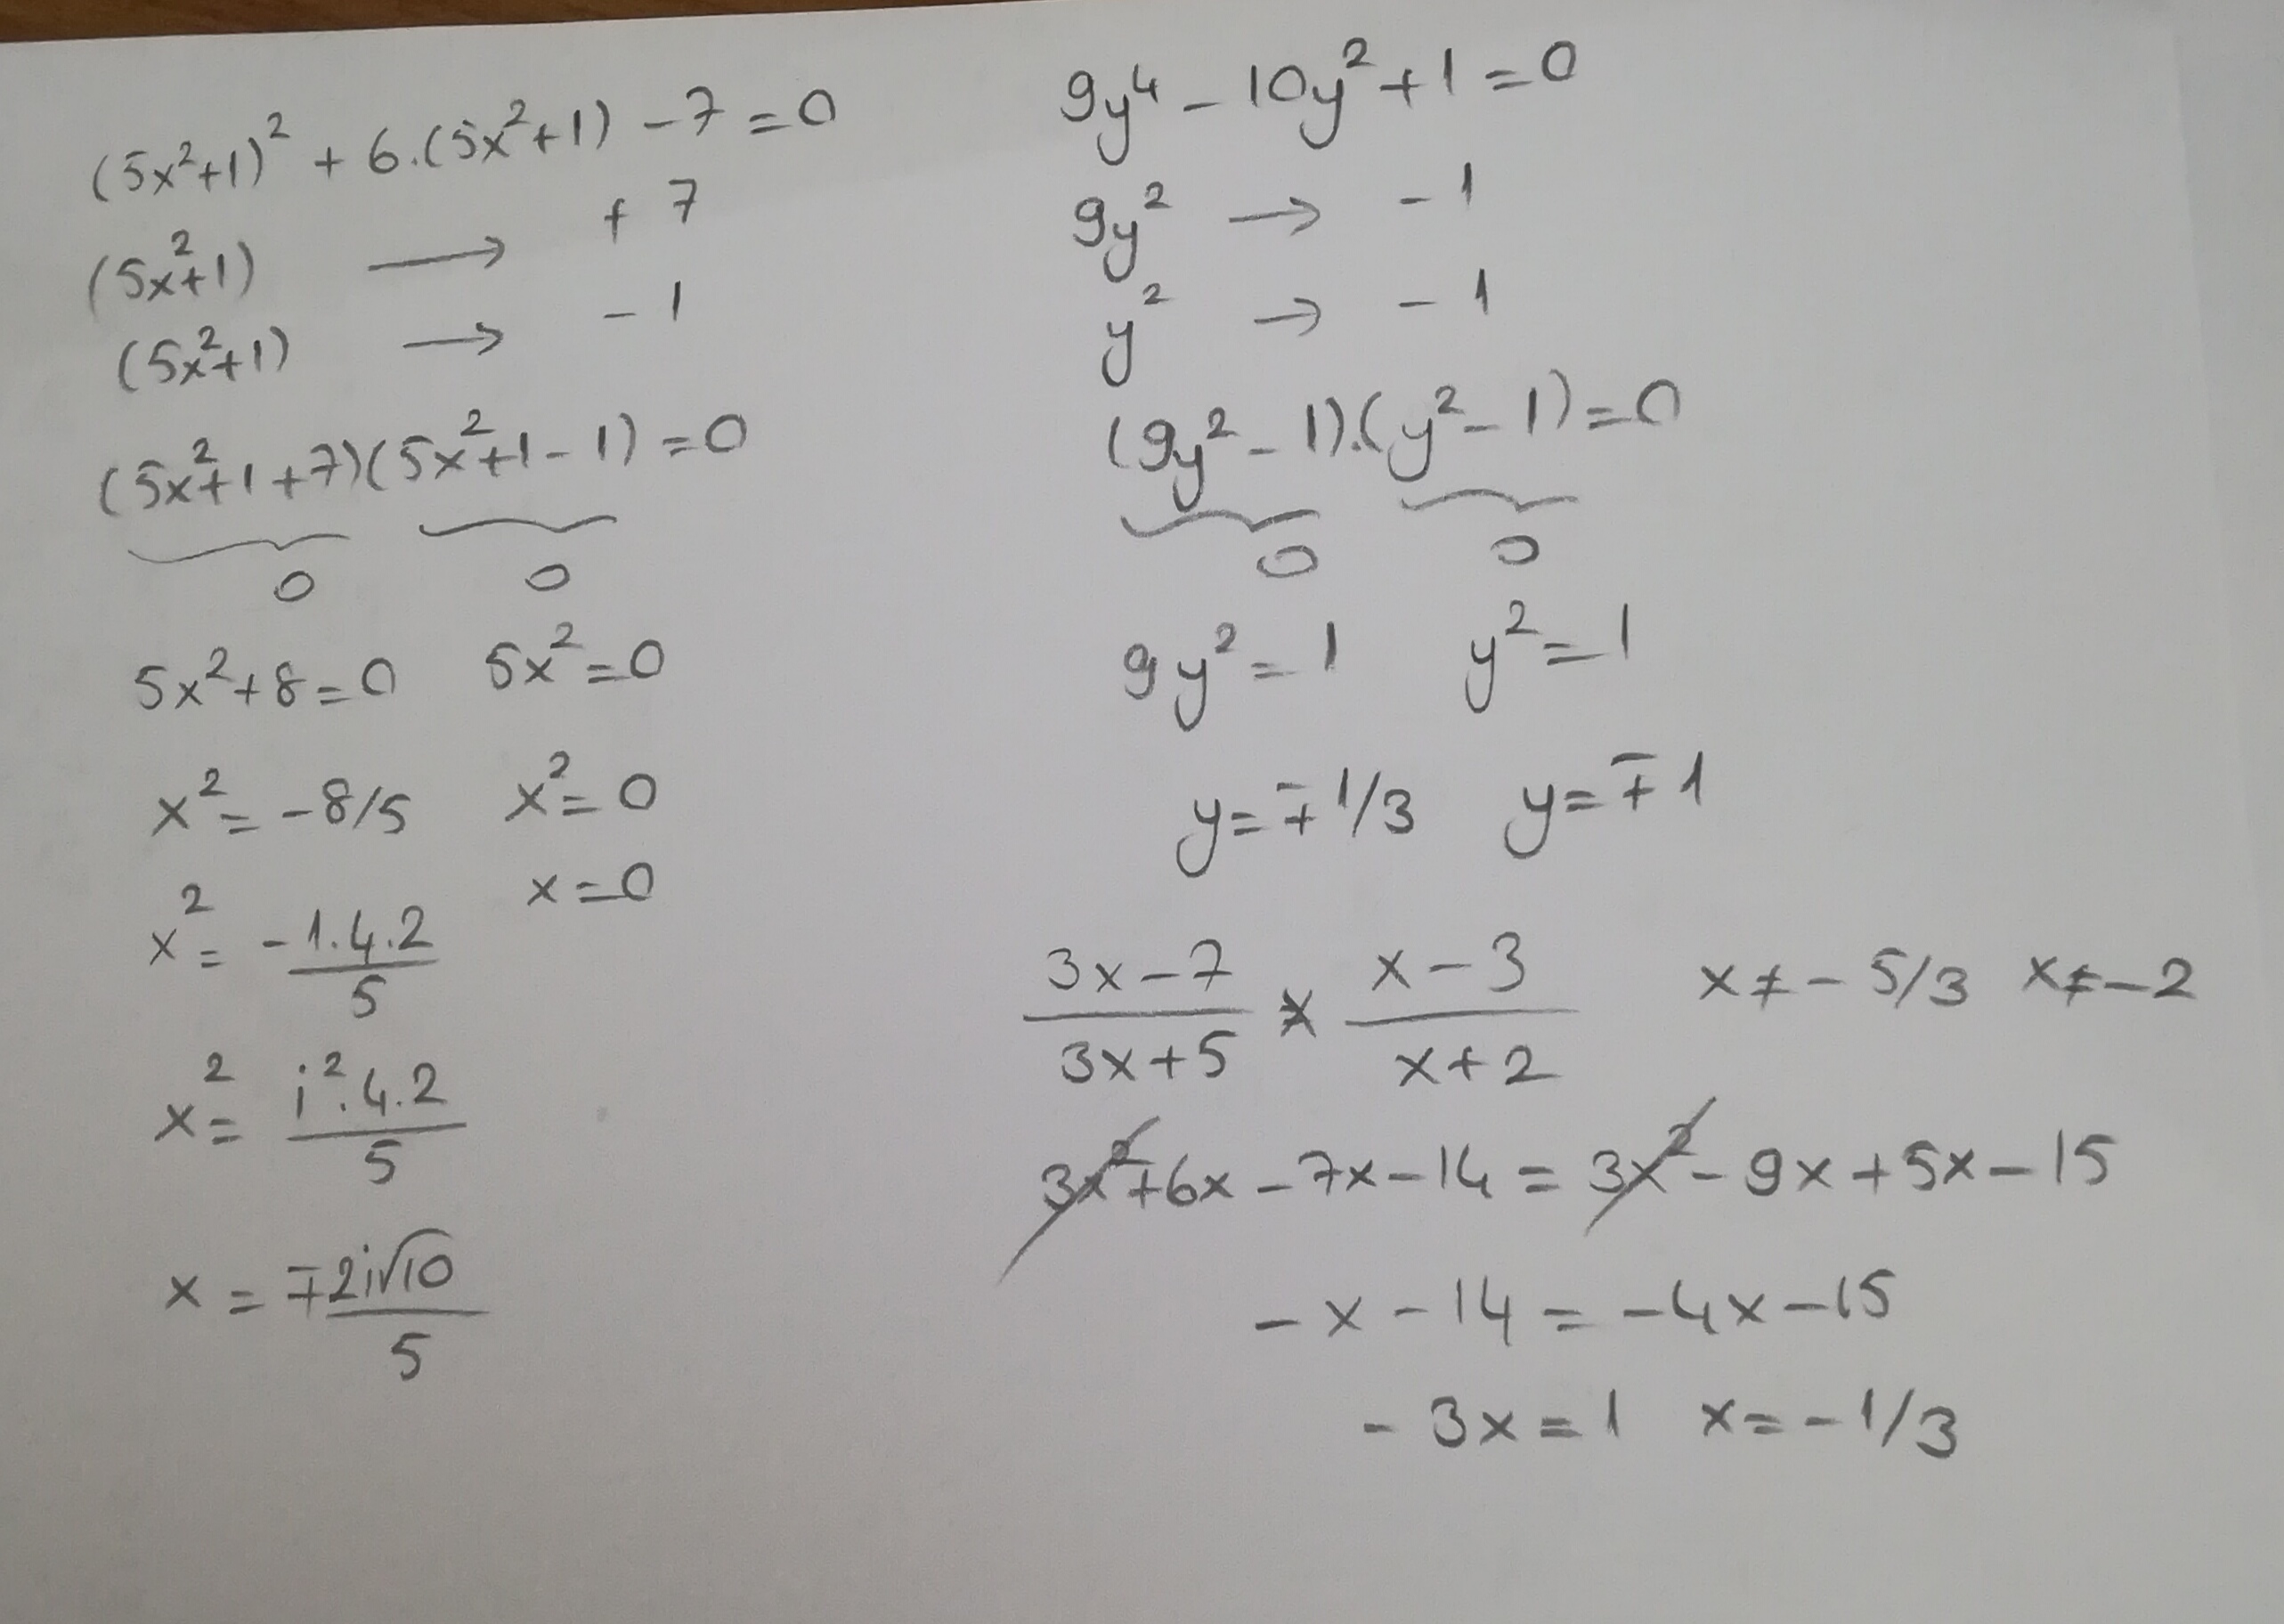 (5x²+1)² + 6.(5x²+1) - 7 = 0
(5x²+1) → + 7
(5x²+1) → - 1
(5x²+1+7)(5x²+1-1) = 0
0 0
5x²+8=0 5x²=0
x² = -8/5 x²=0
x=0
x² = -1.4.2/5
x² = i².4.2/5
x = ∓2i√10/5
9y⁴ - 10y² + 1 = 0
9y² → - 1
y² → - 1
(9y² - 1).(y² - 1) = 0
0 0
9y² = 1 y² = 1
y = ∓1/3 y = ∓1
3x-7/3x+5 × x-3/x+2 x ≠ - 5/3 x ≠ -2
3x²+6x-7x-14 = 3x²-9x+5x-15
-x-14 = -4x-15
-3x=1 x=-1/3